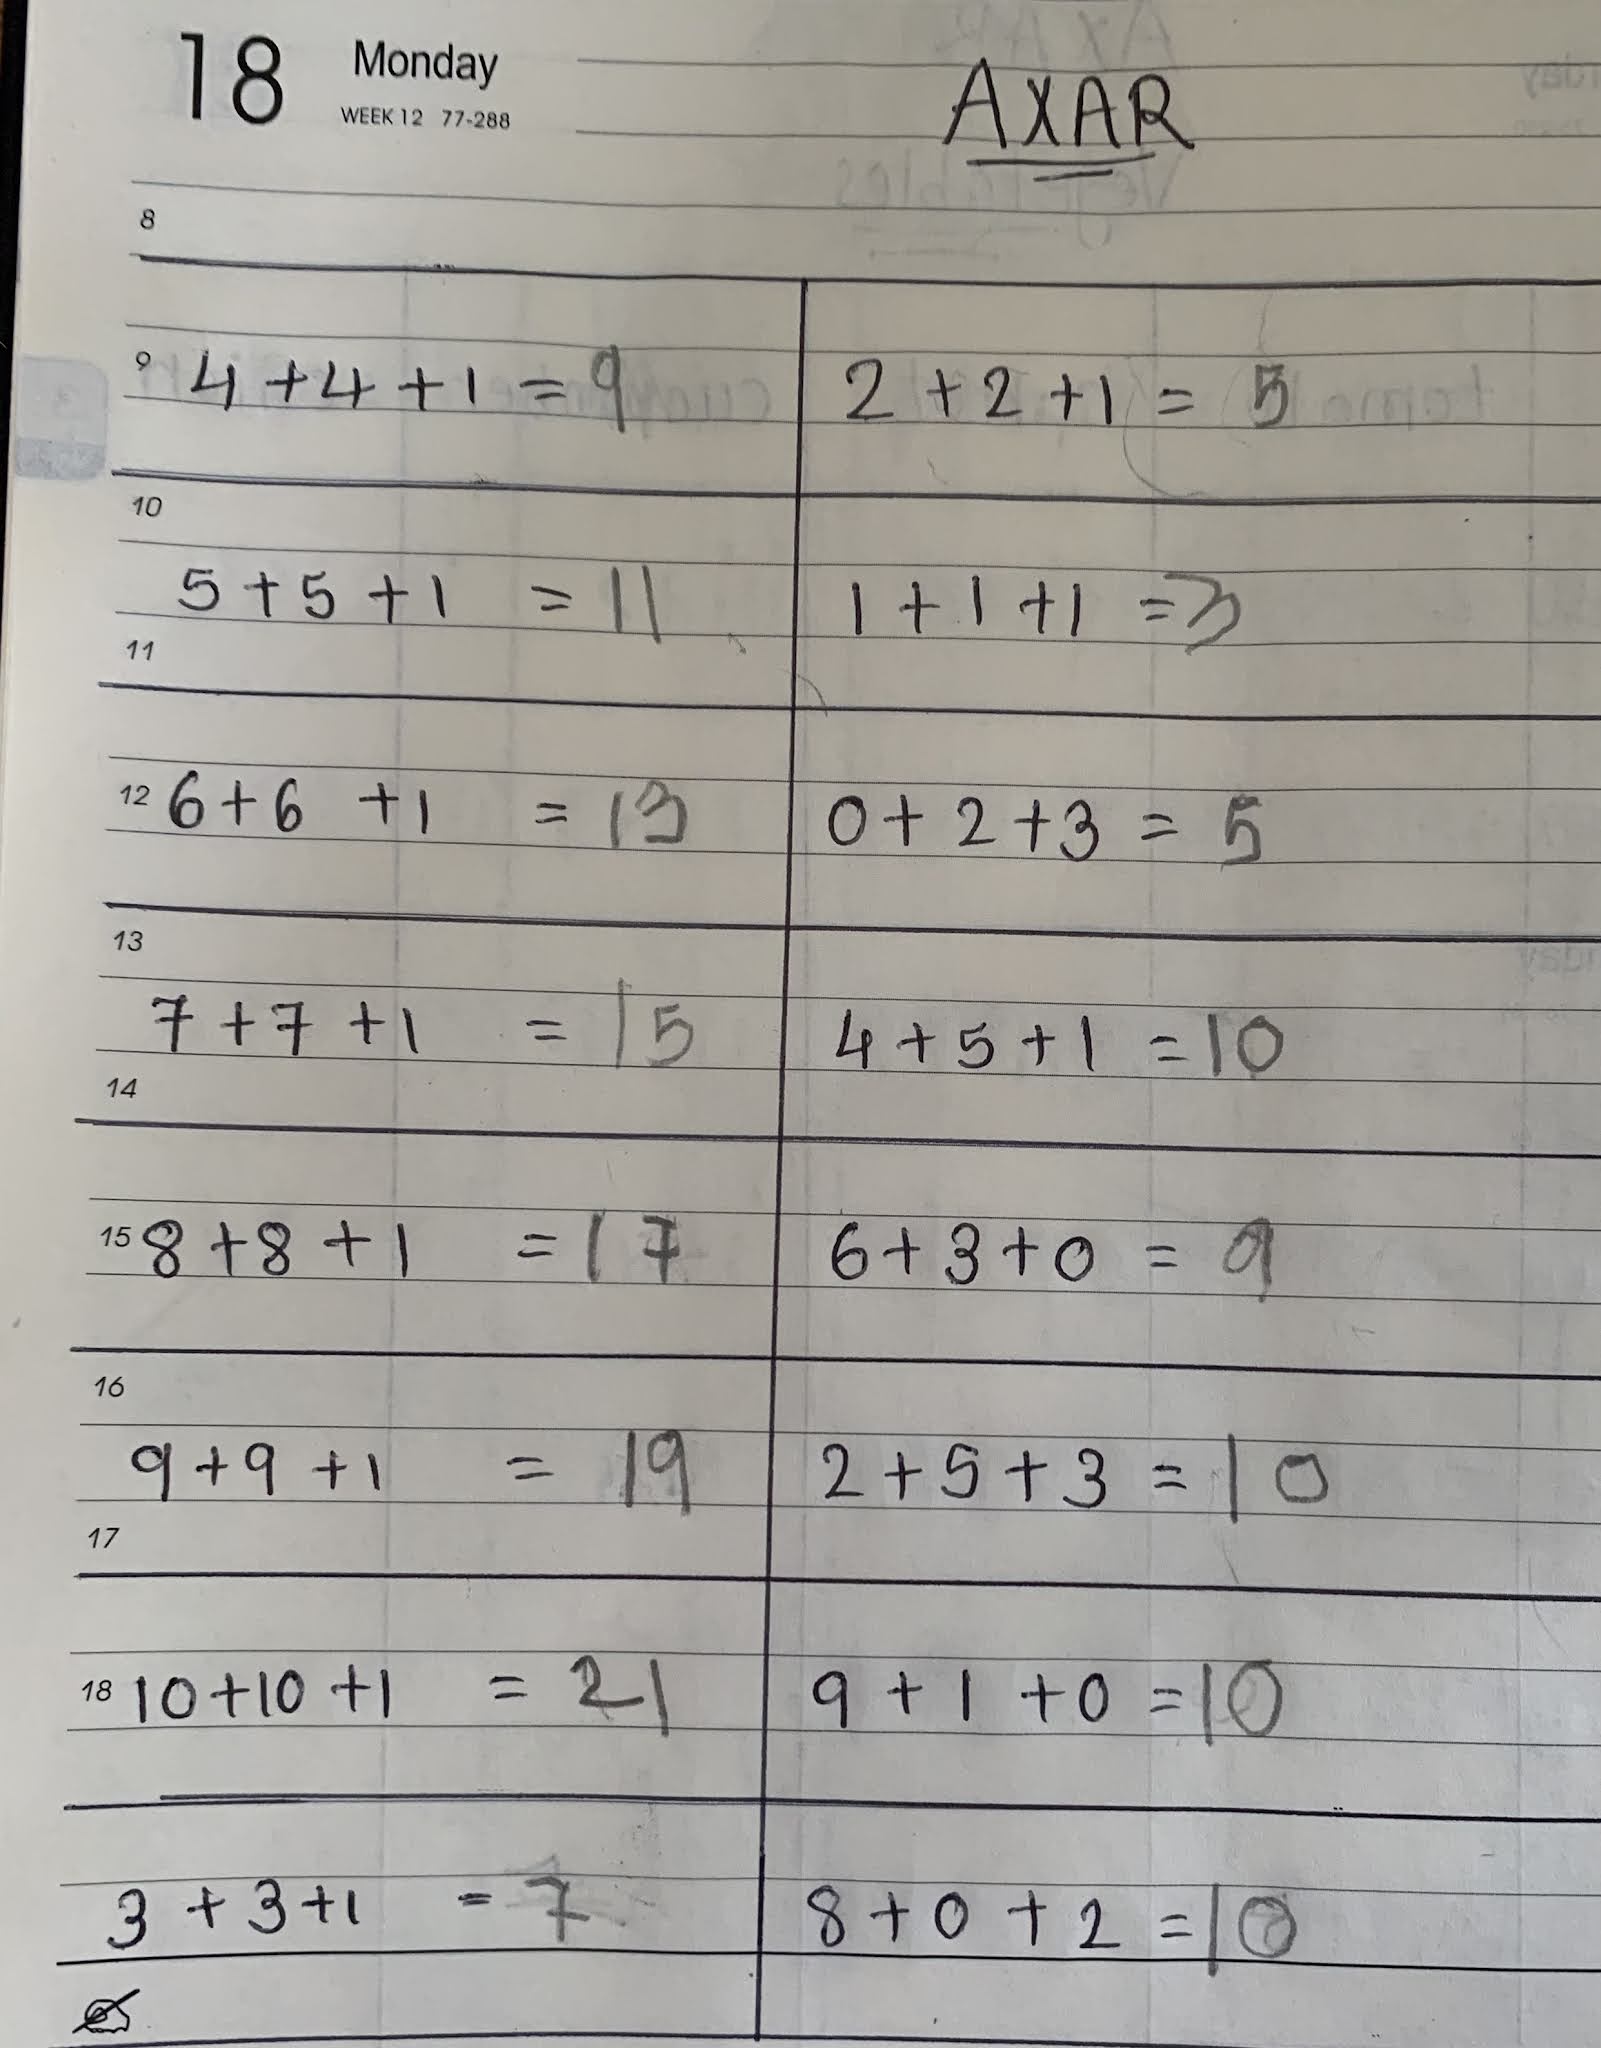 18 Monday
WEEK 12 77-288
AXAR
8
9 4 + 4 + 1 = 9 2 + 2 + 1 = 5
10
5 + 5 + 1 = 11 1 + 1 + 1 = 3
11
12 6 + 6 + 1 = 13 0 + 2 + 3 = 5
13
7 + 7 + 1 = 15 4 + 5 + 1 = 10
14
15 8 + 8 + 1 = 17 6 + 3 + 0 = 9
16
9 + 9 + 1 = 19 2 + 5 + 3 = 10
17
18 10 + 10 + 1 = 21 9 + 1 + 0 = 10
3 + 3 + 1 = 7 8 + 0 + 2 = 10